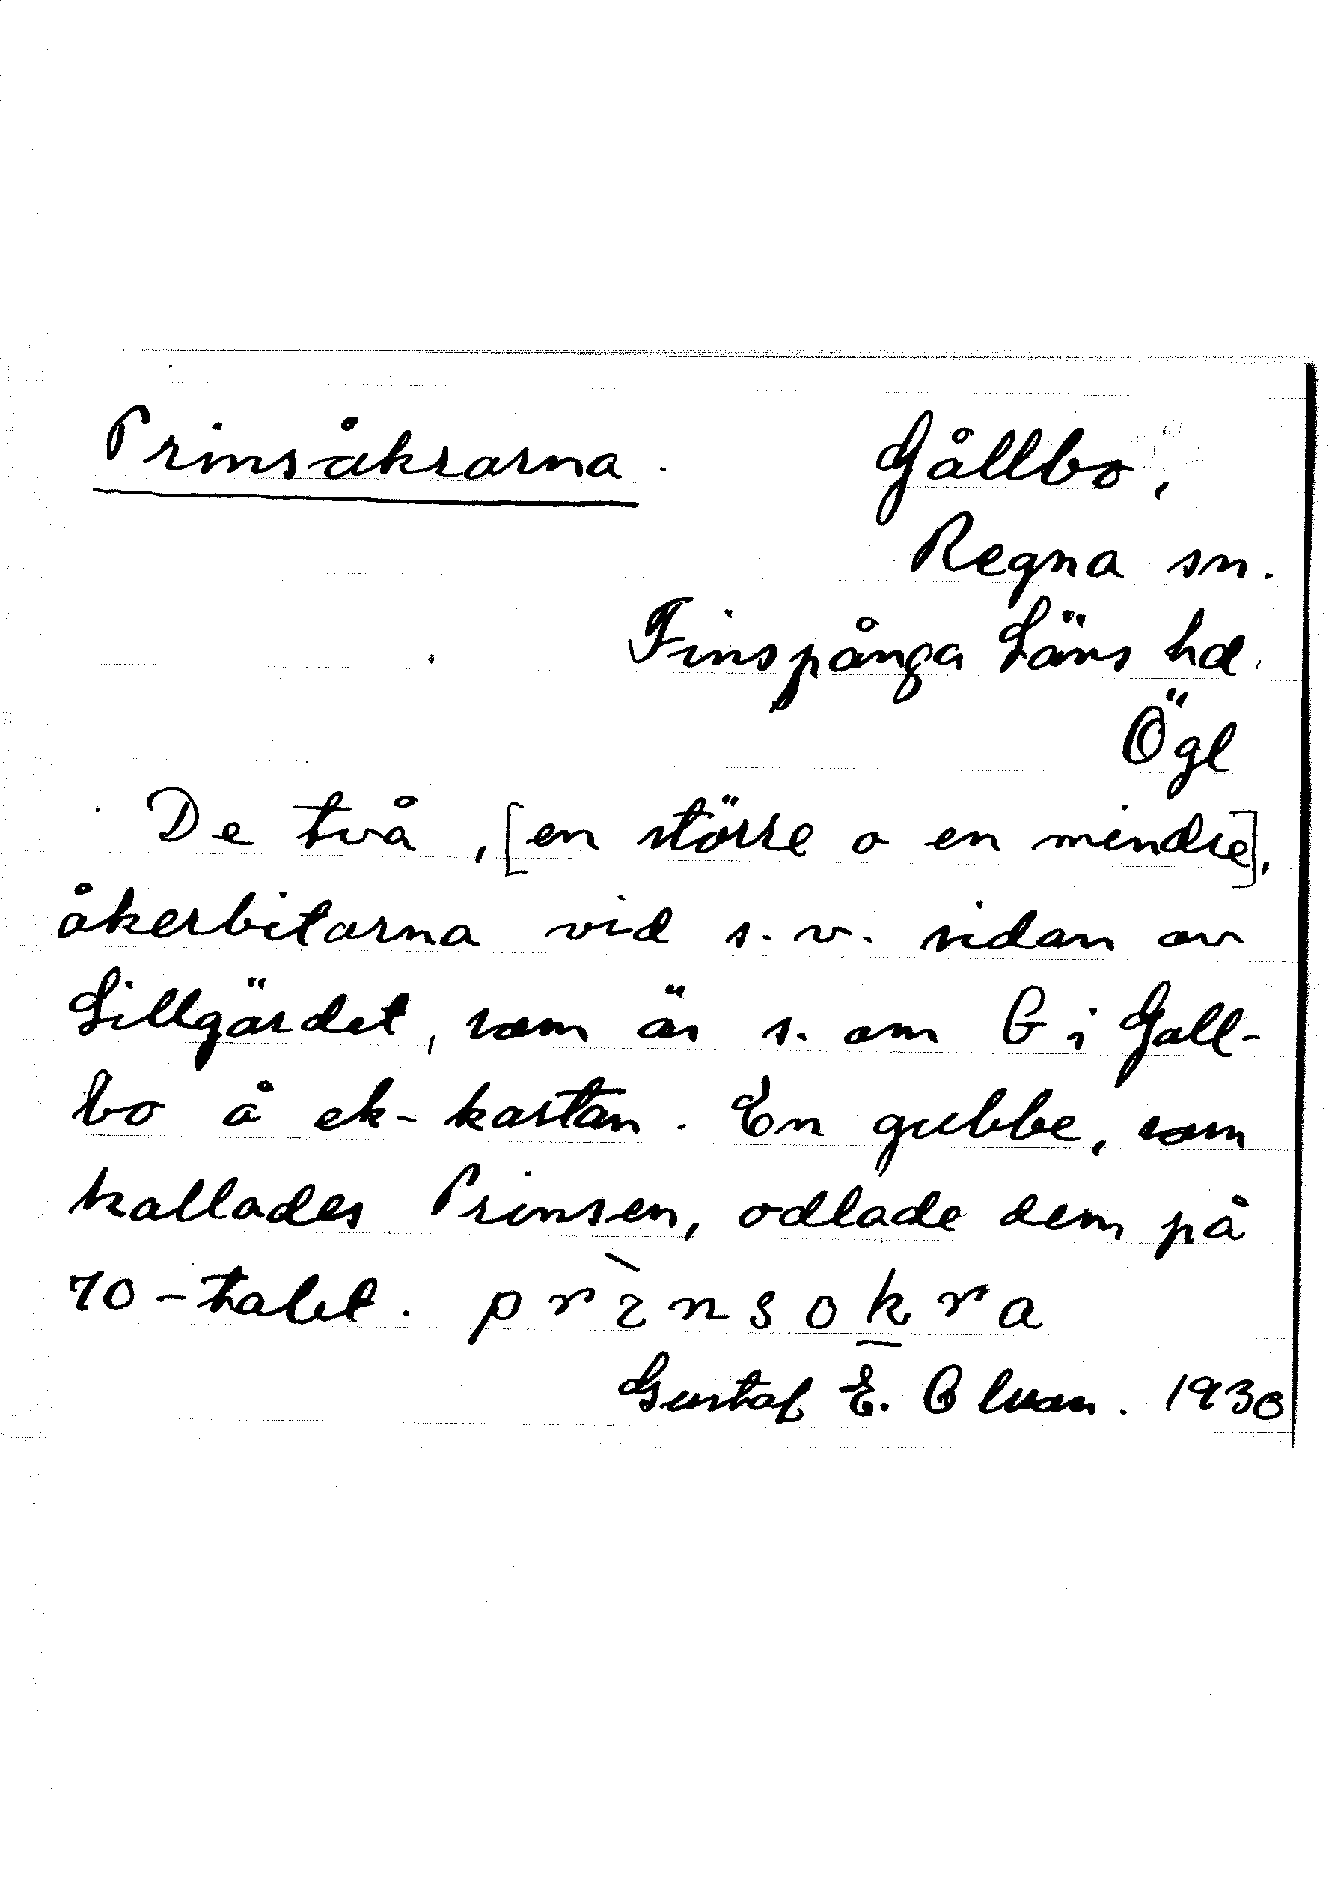 Prinsåkrarna. Gållbo,
Regna sn.
Finspånga Läns hd.
Ögl
De två, [en större o en mindre],
åkerbitarna vid s.v. sidan av
Lillgärdet, som är s. om G i Gåll-
bo å ek-kartan. En gubbe, som
kallades Prinsen, odlade dem på
70-talet. prìnsokra
Gustaf E. 1930